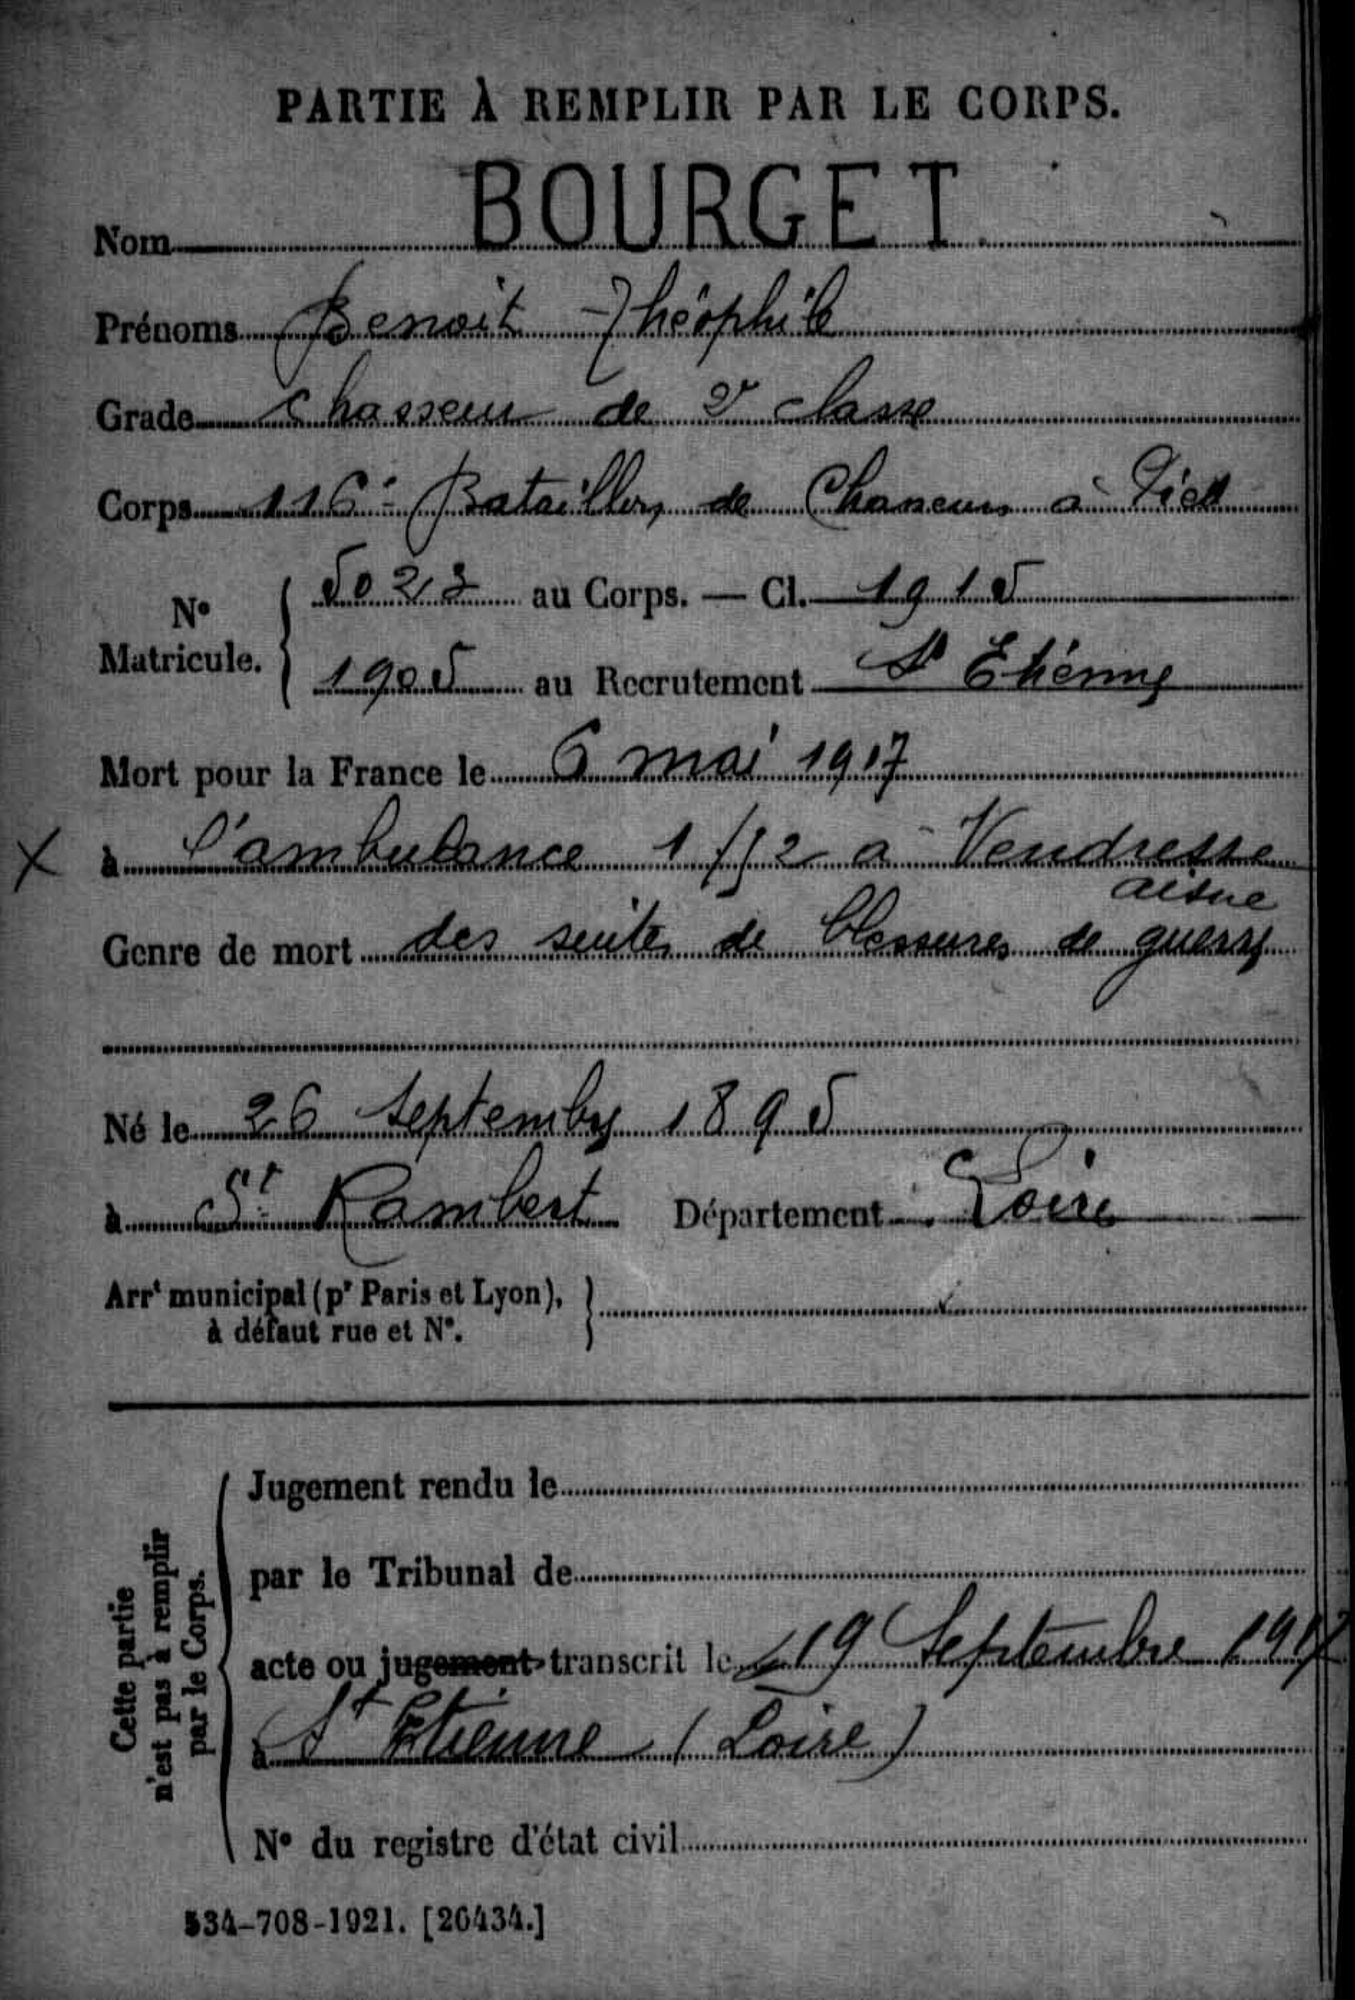 PARTIE À REMPLIR PAR LE CORPS.
Nom BOURGET
Prénoms Benoit Théophile
Grade Chasseur de 2e classe
Corps 116e Bataillon de Chasseurs à Pied
N° Matricule. 5023 au Corps. — Cl. 1915
1905 au Recrutement St Etienne
Mort pour la France le 6 mai 1917
à l'ambulance 1/12 à Vendresse
aisne
Genre de mort des suites de blessures de guerre
Né le 26 septembre 1895
à St Rambert Département Loire
Arrt municipal (pr Paris et Lyon),
à défaut rue et N°.
Cette partie
n'est pas à remplir
par le Corps.
Jugement rendu le
par le Tribunal de
acte ou jugement transcrit le 19 Septembre 1917
à St Etienne (Loire)
N° du registre d'état civil
534-708-1921. [26434.]